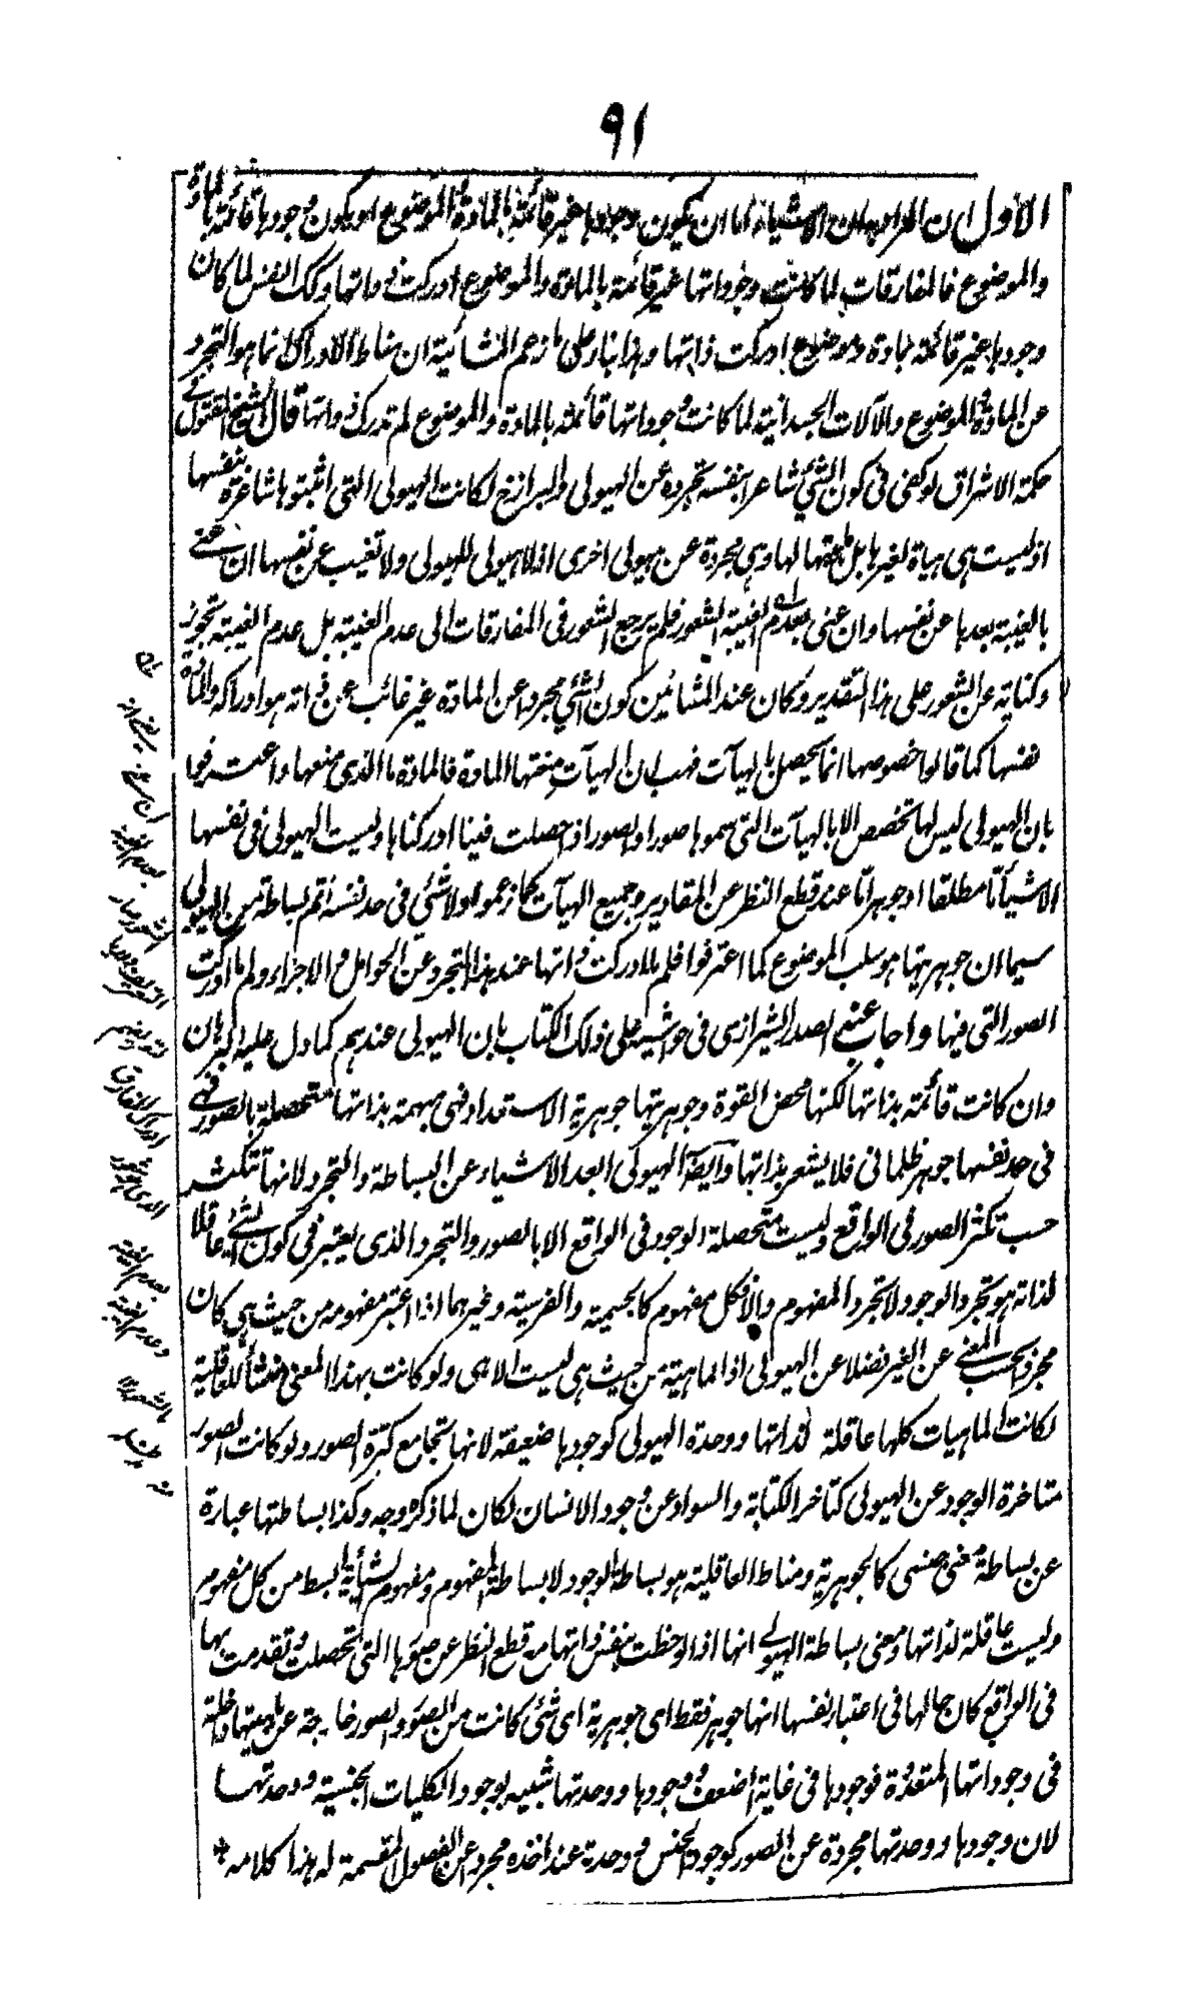 ٩١
الاول ان المراد ان الاشياء اما ان يكون وجودها غير قائمة بالمادة والموضوع او يكون وجودها قائمة بالمادة
والموضوع فالمفارقات لما كانت وجوداتها غير قائمة بالمادة والموضوع ادركت ذواتها وكك النفس لما كان
وجودها غير قائمة بمادة وموضوع ادركت ذاتها وهذا بناء على ما زعم المشائية ان مناط الادراك انما هو التجرد
عن المادة والموضوع والآلات الجسدانية لما كانت وجوداتها قائمة بالمادة والموضوع لم تدرك ذواتها قال الشيخ المقتول في
حكمة الاشراق لو كفى فى كون الشئ شاعرا بنفسه تجرده عن الهيولى والبرازخ لكانت الهيولى التى اثبتوها شاعرة بنفسها
اذ ليست هى هيأة لغيرها بل ماهيتها لها وهى مجردة عن هيولى اخرى اذ لا هيولى للهيولى ولا تغيب عن نفسها ان عنى
بالغيبة بعدها عن نفسها وان عنى بعدم الغيبة الشعور فلم يرجع الشعور فى المفارقات الى عدم الغيبة بل عدم الغيبة تجوز
وكناية عن الشعور على هذا التقدير وكان عند المشائين كون الشئ مجردا عن المادة غير غائب عن ذاته هو ادراكه والمادة
نفسها كما قالوا خصوصها انما يحصل بالهيآت فهب ان الهيآت منعتها المادة فالمادة ما الذى منعها واعترفوا
بان الهيولى ليس لها تخصص الا بالهيآت التى سموها صورا والصور اذا حصلت فينا ادركناها وليست الهيولى فى نفسها
الا شيأ ما مطلقا او جوهرا ما عند قطع النظر عن المقادير وجميع الهيآت كما زعموا ولا شئ فى حد نفسه اتم بساطة من الهيولى
سيما ان جوهريتها هو سلب الموضوع كما اعترفوا فلم ما ادركت ذاتها عند هذا التجرد عن الحوامل والاجزاء ولم ما ادركت
الصور التى فيها واجاب عنه الصدر الشيرازى فى حواشيه على ذلك الكتاب بان الهيولى عندهم كما دل عليه البرهان
وان كانت قائمة بذاتها لكنها محض القوة وجوهريتها جوهرية الاستعداد فهى مبهمة بذاتها متحصلة بالصور فهى
فى حد نفسها جوهر ظلمانى فلا يشعر بذاتها وايضا الهيولى ابعد الاشياء عن البساطة والتجرد لانها تتكثر
حسب تكثر الصور فى الواقع وليست متحصلة الوجود فى الواقع الا بالصور والتجرد الذى يعتبر فى كون الشئ عاقلا
لذاته هو تجرد الوجود لا تجرد المفهوم والا فكل مفهوم كالجسمية والفرسية وغيرهما اذا اعتبر مفهومه من حيث هى كان
مجردا بحسب المعنى عن الغير فضلا عن الهيولى اذ الماهية من حيث هى ليست الا هى ولو كانت بهذا المعنى منشأ للعاقلية
لكانت الماهيات كلها عاقلة لذاتها ووحدة الهيولى كوجودها ضعيفة لانها تجامع كثرة الصور ولو كانت الصور
متاخرة الوجود عن الهيولى كتاخر الكتابة والسواد عن وجود الانسان لكان لما ذكره وجه وكذا بساطتها عبارة
عن بساطة معنى جنسى كالجوهرية ومناط العاقلية هو بساطة الوجود لا بساطة المفهوم ومفهوم الشيأية ابسط من كل مفهوم
وليست عاقلة لذاتها ومعنى بساطة الهيولى انها اذا لوحظت بنفس ذاتها مع قطع النظر عن صورها التى تحصلت وتقدمت بها
فى الواقع كان حالها فى اعتبار نفسها انها جوهر فقط اى جوهرية اى شئ كانت من الصور والصور خارجة عن ماهيتها داخلة
فى وجوداتها المتعددة فوجودها فى غاية اضعف وجودها ووحدتها شبيه بوجود الكليات الجنسية ووحدتها
لان وجودها ووحدتها مجردة عن الصور كوجود الجنس ووحدته عند اخذه مجردا عن الفصول المقسمة له هذا كلامه *